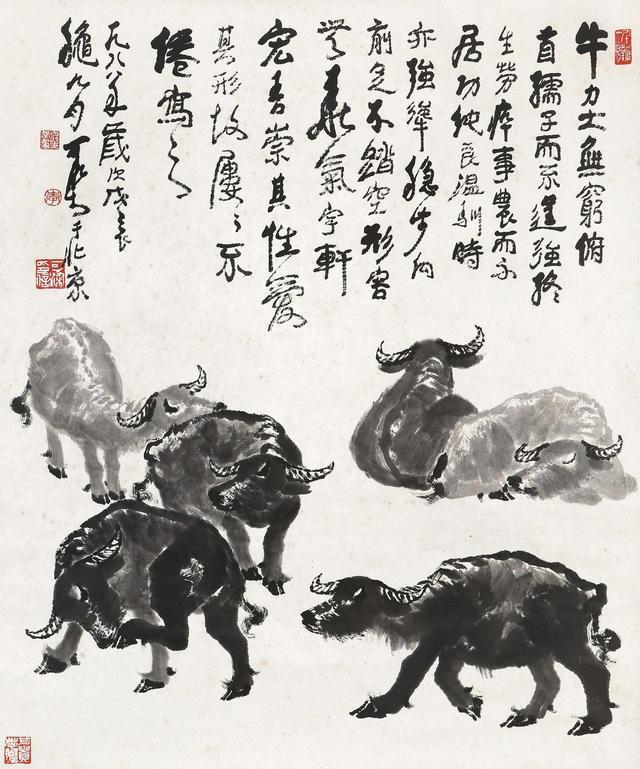 牛力大無窮俯
首孺子而不逞強終
生勞瘁事農而不
居功純良溫馴時
亦強犟穩步向
前足不踏空形容
無華氣宇軒
宏吾崇其性愛
其形故屢々不
倦寫之
一九八八年歲次戊辰
龝九月可染于北京